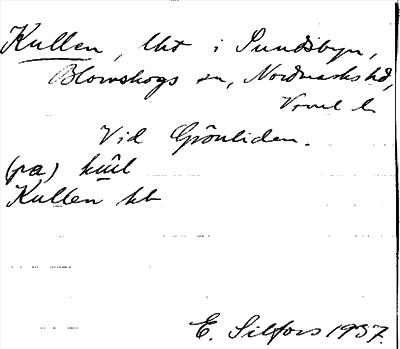 Kullen, lht i Sundsbyn,
Blomskogs sn, Nordmarks hd,
Vrml l.
Vid Grönliden.
(pa) kul
Kullen kb
E. Silfors 1937.